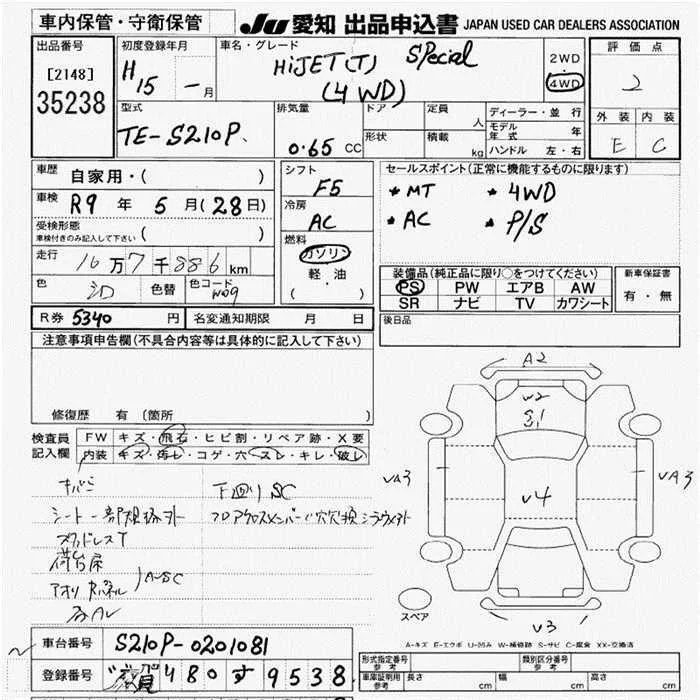 車内保管・守衛保管
JU 愛知 出品申込書 JAPAN USED CAR DEALERS ASSOCIATION
出品番号
[2148]
35238
初度登録年月
H15 - 月
車名・グレード
HiJET(T) SPecial
(4WD)
2WD
4WD
評価点
2
外装 内装
E C
型式
TE-S210P.
排気量
0.65 CC
ドア
形状
定員 人
積載 kg
ディーラー・並行
モデル年式 年
ハンドル 左・右
車歴 自家用・( )
車検 R9 年 5 月(28日)
受検形態
車検付きのみ記入して下さい ( )
走行 16万7千886km
色 色替 色コード W09
シフト
F5
冷房
AC
燃料
ガソリン
軽・油
( )
セールスポイント(正常に機能するものに限ります)
* MT * 4WD
* AC * P/S
装備品(純正品に限り○をつけてください)
PS PW エアB AW
SR ナビ TV カワシート
新車保証書
有・無
R券 5340 円 名変通知期限 月 日
後日品
注意事項申告欄(不具合内容等は具体的に記入して下さい)
修復歴 有 〔箇所 〕
検査員記入欄
FW キズ・飛石・ヒビ割・リペア跡・X要
内装 キズ・汚レ・コゲ・穴・スレ・キレ・破レ
下回りSC
スタッドレスT
A~SC
A2
W2
S1
VA3
V4
VA3
V3
スペア
A-キズ E-エクボ U-凹み W-補修跡 S-サビ C-腐食 XX-交換済
車台番号 S210P-0201081
登録番号 滋賀 480 す 9538
形式指定番号 参考
類別区分番号 参考
車庫証明用 参考 長さ cm 幅 cm 高さ cm